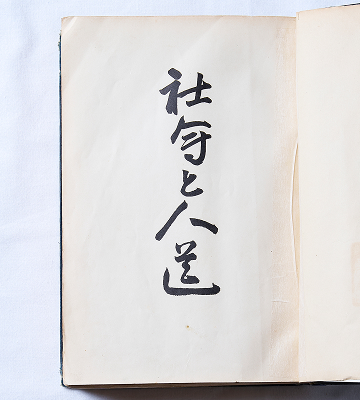 社会と人道